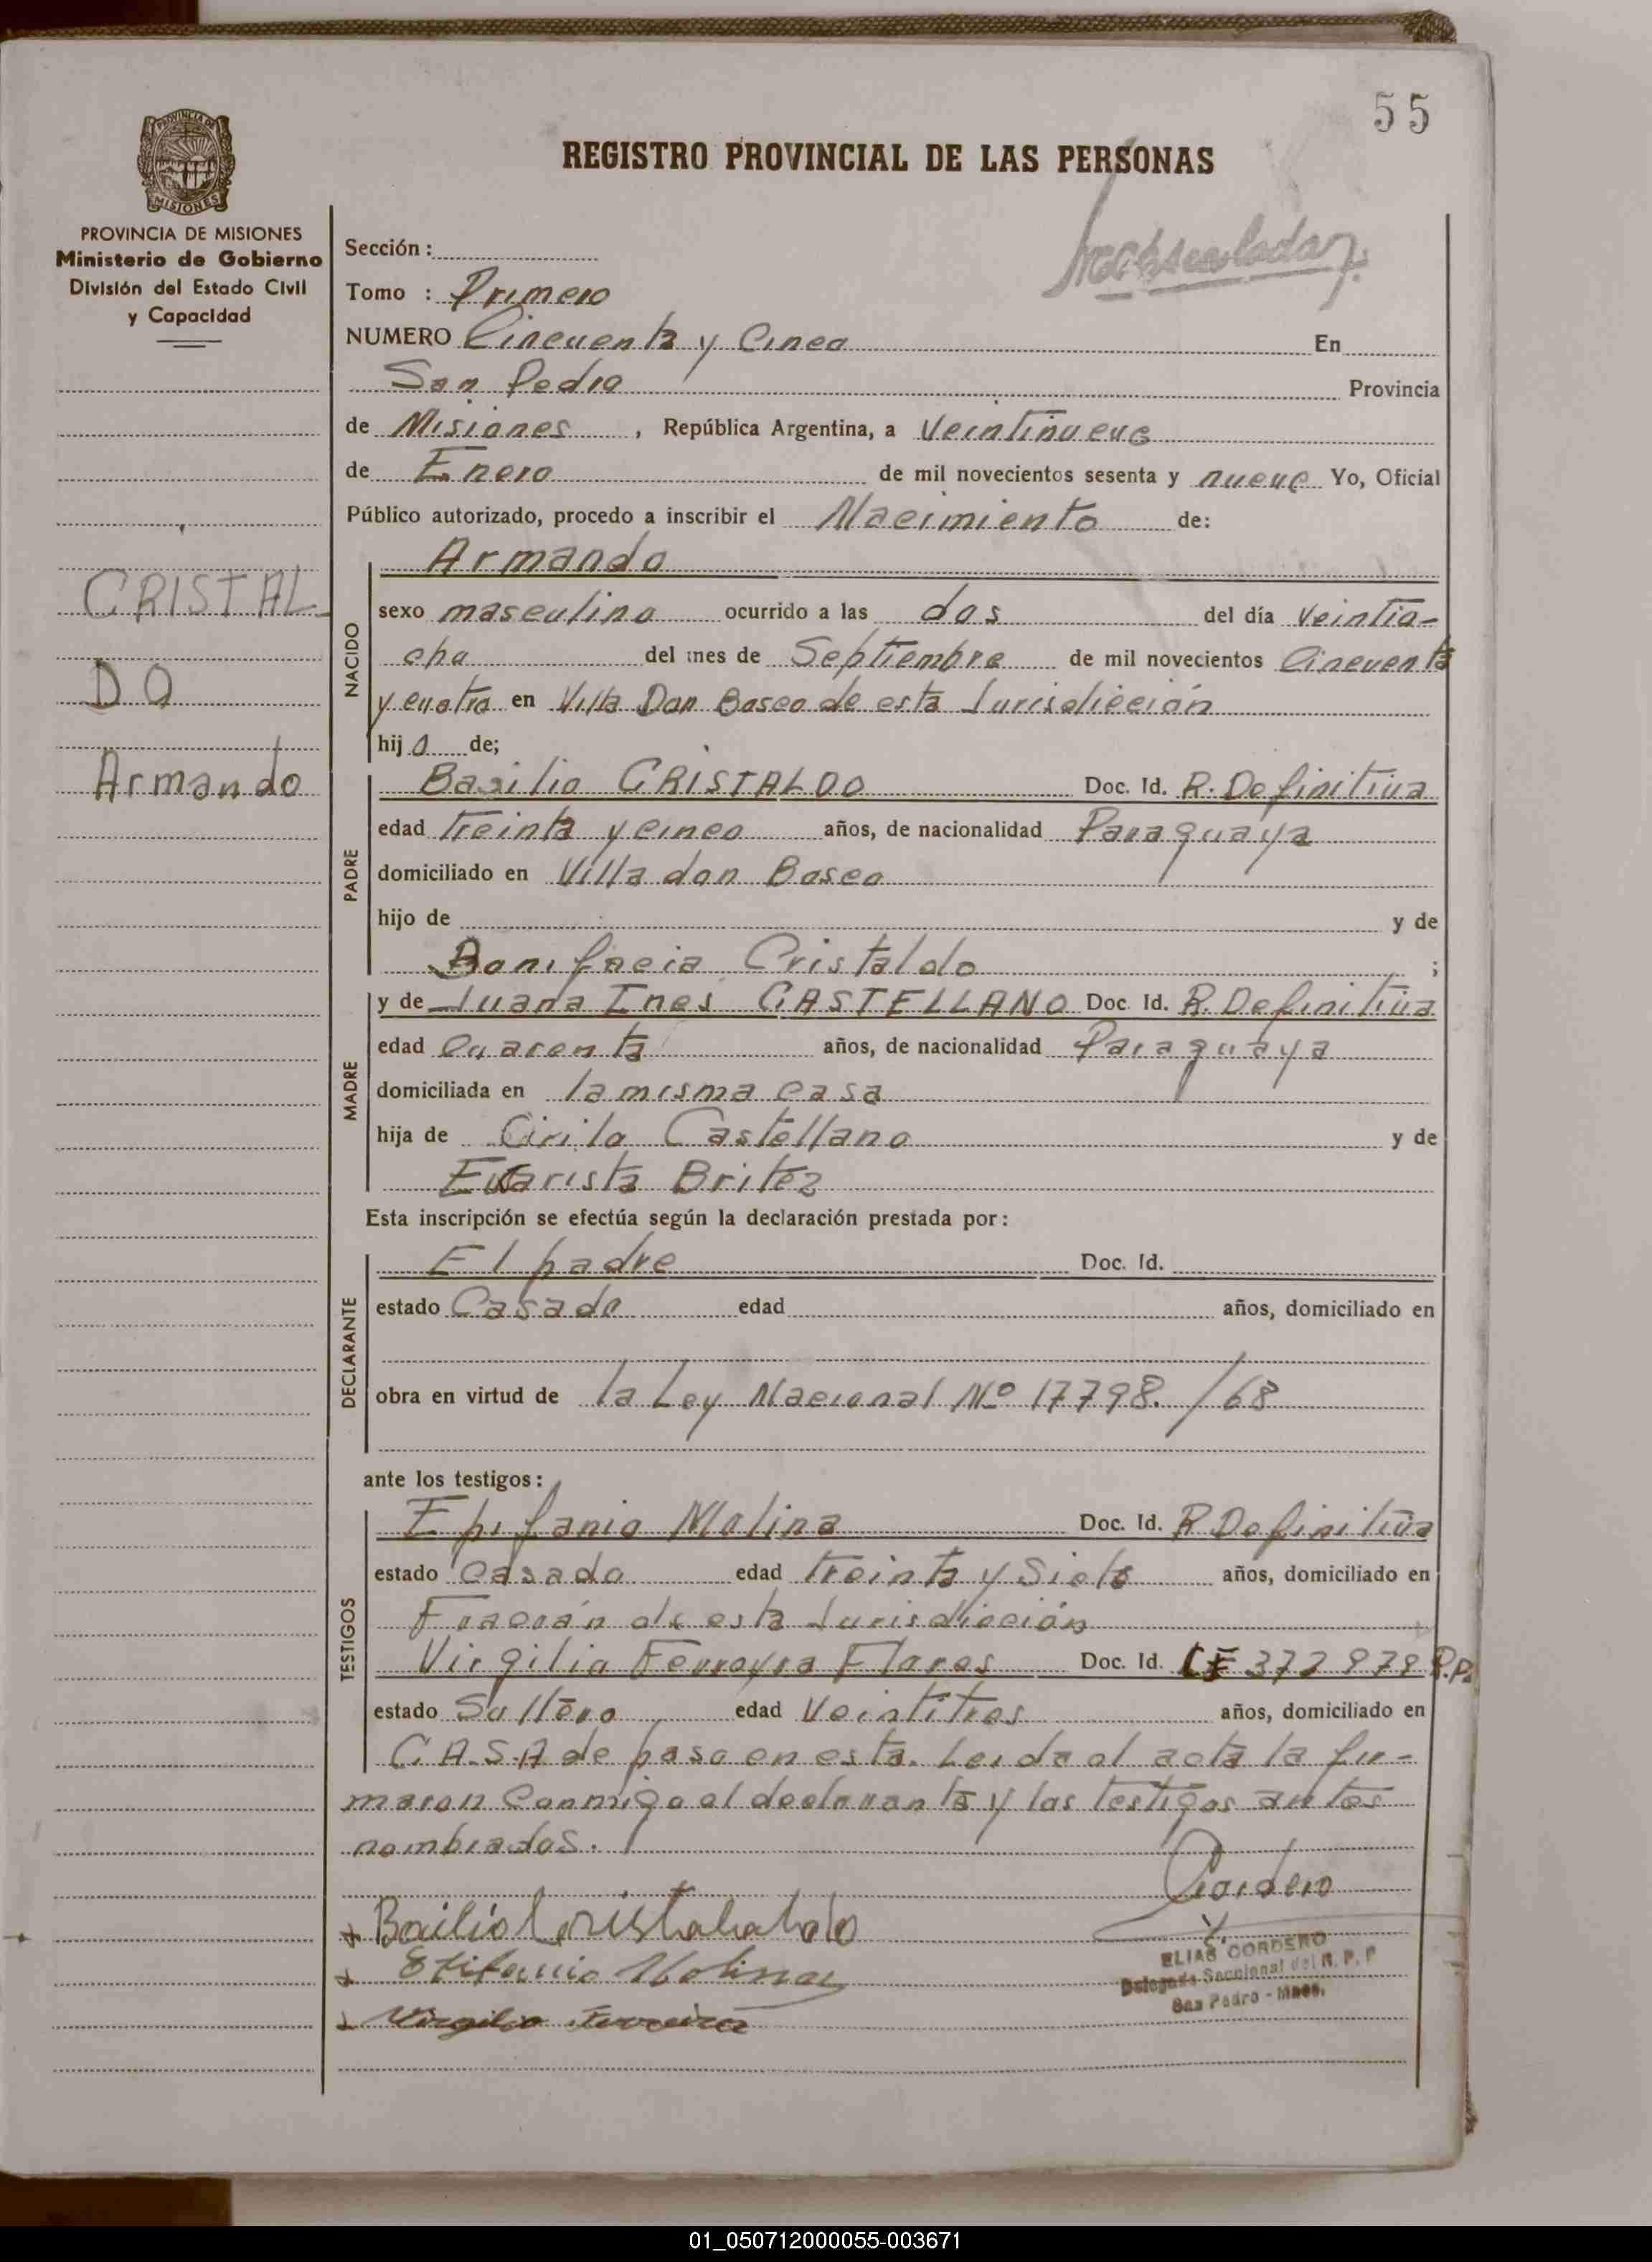 55
REGISTRO PROVINCIAL DE LAS PERSONAS
PROVINCIA DE MISIONES
PROVINCIA DE MISIONES
Ministerio de Gobierno
División del Estado Civil
y Capacidad
Sección :
Tomo : Primero
NUMERO Cincuenta y Cinco En
San Pedro Provincia
de Misiones , República Argentina, a Veintinueve
de Enero de mil novecientos sesenta y nueve Yo, Oficial
Público autorizado, procedo a inscribir el Nacimiento de:
CRISTAL-
DO
Armando
NACIDO
Armando
sexo masculino ocurrido a las dos del día Veintio-
cho del mes de Septiembre de mil novecientos Cincuenta
y cuatro en Villa Don Bosco de esta Jurisdicción
hijo de;
PADRE
Basilio CRISTALDO Doc. Id. R. Definitiva
edad Treinta y cinco años, de nacionalidad Paraguaya
domiciliado en Villa don Bosco
hijo de y de
Bonifacia Cristaldo ;
MADRE
y de Juana Ines CASTELLANO Doc. Id. R. Definitiva
edad Cuarenta años, de nacionalidad Paraguaya
domiciliada en la misma casa
hija de Cirilo Castellano y de
Evarista Britez
Esta inscripción se efectúa según la declaración prestada por:
DECLARANTE
El padre Doc. Id.
estado Casado edad años, domiciliado en
obra en virtud de la Ley Nacional Nº 17798./68
ante los testigos:
TESTIGOS
Epifanio Molina Doc. Id. R Definitiva
estado Casado edad treinta y Siete años, domiciliado en
Fracrán de esta Jurisdicción
Virgilio Ferreyra Flores Doc. Id. 372979 P.P.
estado Soltero edad Veintitres años, domiciliado en
C.A.S.A de paso en esta. Leida el acta la fir-
maron Conmigo el declarante y los testigos antes
nombrados.
Cordero
Molina
Virgilio Ferreira
ELIAS CORDERO
Delegado Seccional del R. P. P
San Pedro - Mnes.
01_050712000055-003671